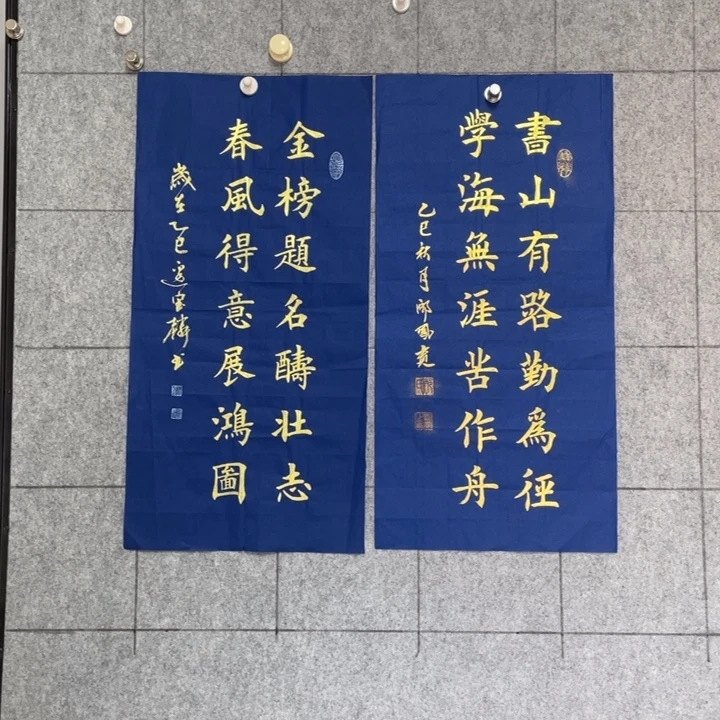 書山有路勤為徑
學海無涯苦作舟
乙巳秋月
金榜題名醻壯志
春風得意展鴻圖
歲在乙巳 書